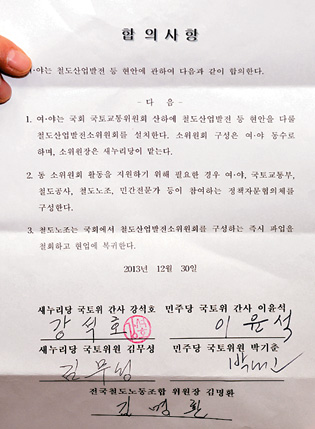 합 의 사 항
·야는 철도산업발전 등 현안에 관하여 다음과 같이 합의한다.
- 다 음 -
1. 여·야는 국회 국토교통위원회 산하에 철도산업발전 등 현안을 다룰
철도산업발전소위원회를 설치한다. 소위원회 구성은 여·야 동수로
하며, 소위원장은 새누리당이 맡는다.
2. 동 소위원회 활동을 지원하기 위해 필요한 경우 여·야, 국토교통부,
철도공사, 철도노조, 민간전문가 등이 참여하는 정책자문협의체를
구성한다.
3. 철도노조는 국회에서 철도산업발전소위원회를 구성하는 즉시 파업을
철회하고 현업에 복귀한다.
2013년 12월 30일
새누리당 국토위 간사 강석호 민주당 국토위 간사 이윤석
강 석 호 이 윤 석
새누리당 국토위원 김무성 민주당 국토위원 박기춘
김 무 성
전국철도노동조합 위원장 김명환
김 명 환